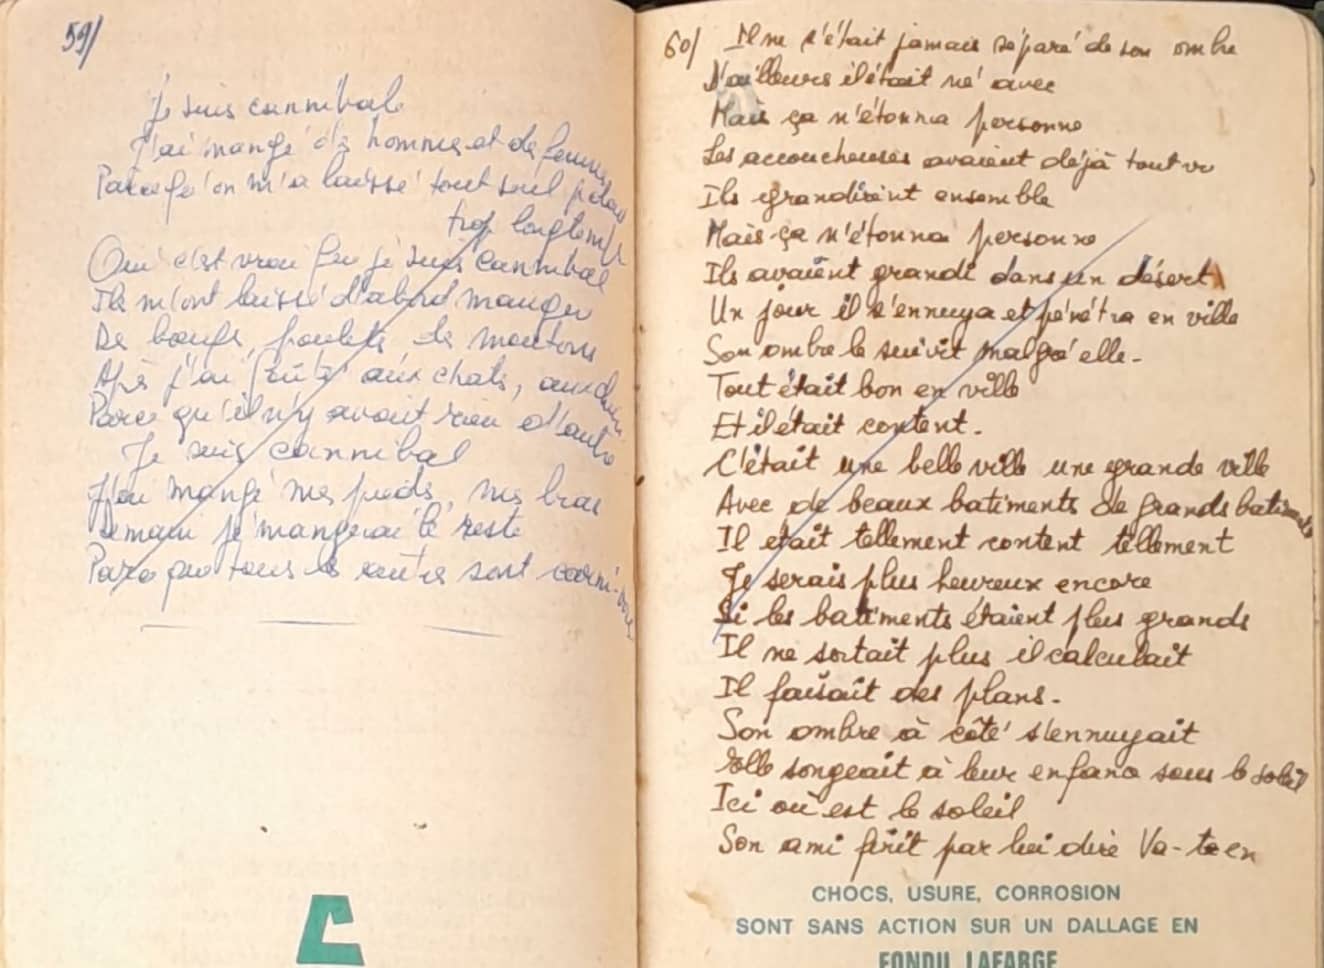 59/
Je suis cannibale
J'ai mangé des hommes et des femmes
Parce qu'on m'a laissé tout seul pendant
trop longtemps
Oui c'est vrai que je suis cannibal
Ils m'ont laissé d'abord manger
Des bœufs, poulets des moutons
Après j'ai goûté aux chats, aux chiens
Parce qu'il n'y avait rien d'autre
Je suis cannibal
J'ai mangé mes pieds, mes bras
Demain je mangerai le reste
Parce que tous les autres sont carni-vores
60/ Il ne s'était jamais séparé de son ombre
D'ailleurs il était né avec
Mais ça n'étonna personne
Les accoucheuses avaient déjà tout vu
Ils grandirent ensemble
Mais ça n'étonna personne
Ils avaient grandi dans un désert
Un jour il s'ennuya et pénétra en ville
Son ombre le suivit malgré elle.
Tout était bon en ville
Et il était content.
C'était une belle ville une grande ville
Avec de beaux batiments de grands batiments
Il était tellement content tellement
Je serais plus heureux encore
Si les batiments étaient plus grands
Il ne sortait plus il calculait
Il faisait des plans.
Son ombre à côté s'ennuyait
Elle songeait à leur enfance sous le soleil
Ici où est le soleil
Son ami finit par lui dire Va-t-en
CHOCS, USURE, CORROSION
SONT SANS ACTION SUR UN DALLAGE EN
FONDU LAFARGE